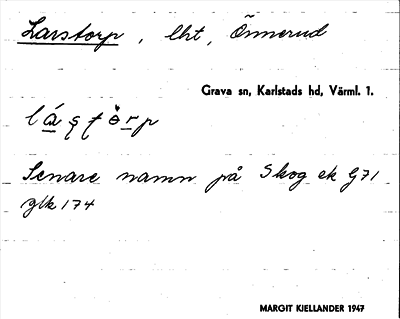 Larstorp, lht, Önnerud
Grava sn, Karlstads hd, Värml. l.
Senare namn på Skog ek G71
glk 174
MARGIT KIELLANDER 1947